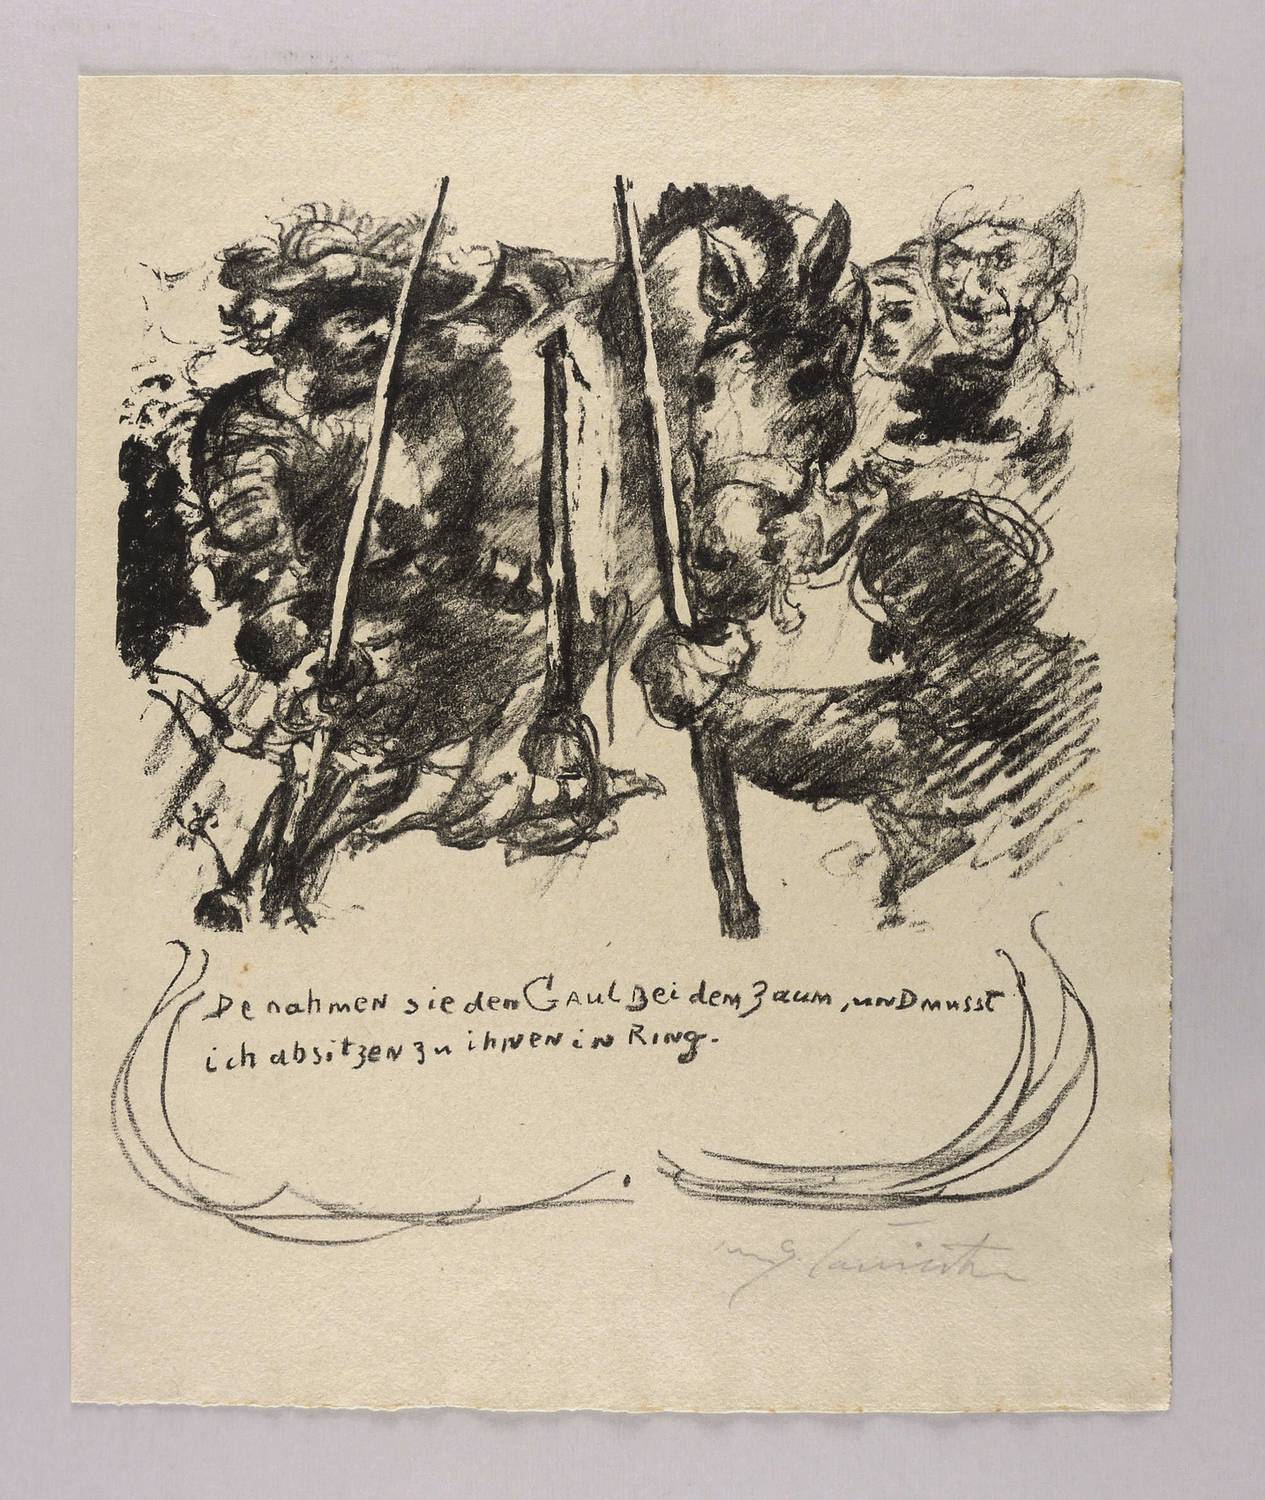 De nahmen sie den GAUL Bei dem Zaum, unD musst
ich absitzen zu ihnen in Ring.